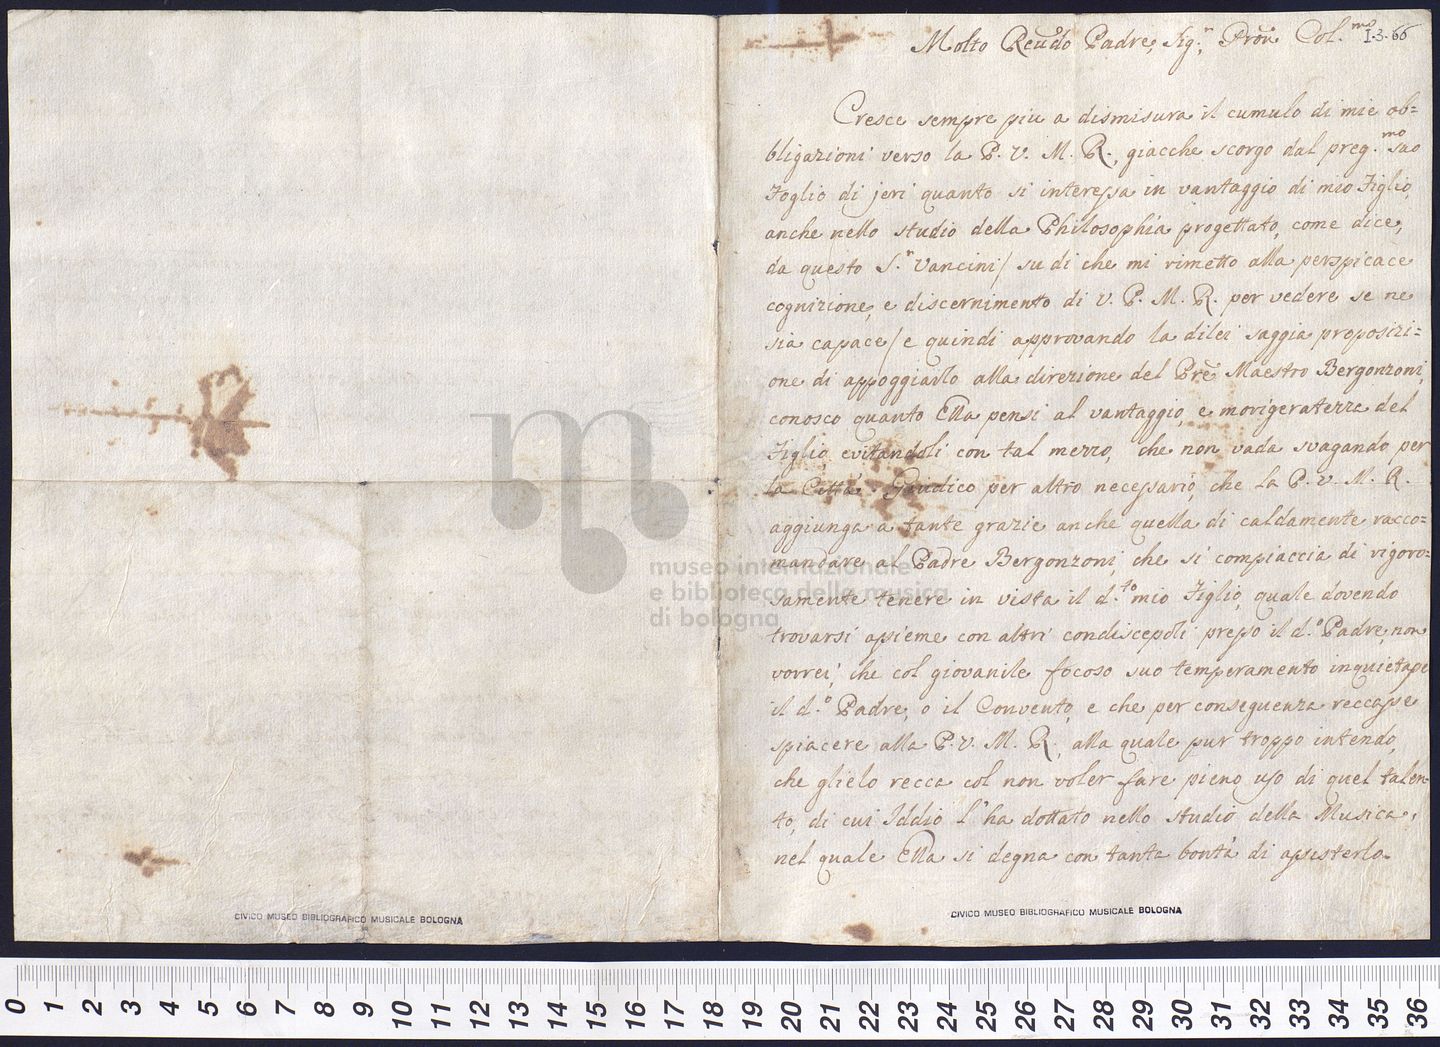 Molto Reudo Padre, Sig.r Prōn Col.mo I.3.66
Cresce sempre piu a dismisura il cumulo di mie ob=
bligazioni verso la P. V. M. R., giacche scorgo dal preg.mo suo
Foglio di jeri quanto si interessa in vantaggio di mio Figlio,
anche nello studio della Philosophia progettato, come dice,
da questo S.r Vancini / su di che mi rimetto alla perspicace
cognizione, e discernimento di V. P. M. R. per vedere se ne
sia capace / e quindi approvando la dilei saggia proposizi=
one di appoggiarlo alla direzione del Prē Maestro Bergonzoni,
conosco quanto Ella pensi al vantaggio, e morigeratezza del
Figlio, evitandoli con tal mezzo, che non vada svagando per
la Città. Giudico per altro necessario, che la P. V. M. R.
aggiunga a tante grazie anche quella di caldamente racco=
mandare al Padre Bergonzoni, che si compiaccia di vigoro=
samente tenere in vista il d.to mio Figlio, quale dovendo
trovarsi assieme con altri condiscepoli presso il d.o Padre, non
vorrei, che col giovanile focoso suo temperamento inquietasse
il d.o Padre, o il Convento, e che per conseguenza reccasse
spiacere alla P. V. M. R., alla quale pur troppo intendo,
che glielo recca col non voler fare pieno uso di quel talen=
to, di cui Iddio l'ha dottato nello studio della Musica,
nel quale Ella si degna con tanta bontà di assisterlo.
CIVICO MUSEO BIBLIOGRAFICO MUSICALE BOLOGNA
CIVICO MUSEO BIBLIOGRAFICO MUSICALE BOLOGNA
museo internazionale
e biblioteca della musica
di bologna
0 1 2 3 4 5 6 7 8 9 10 11 12 13 14 15 16 17 18 19 20 21 22 23 24 25 26 27 28 29 30 31 32 33 34 35 36